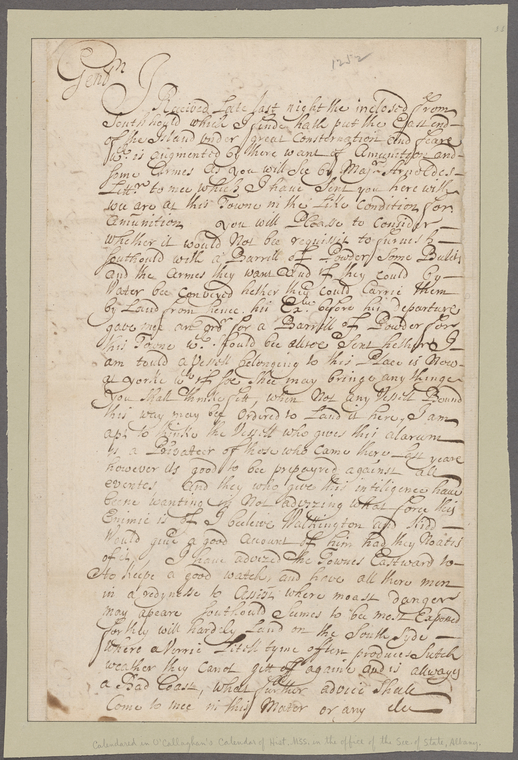 1252
Gentmn
I Received Late last night the inclosed from
Southhould which I finde hath put the East end
of the Island under great Consternation and feare
wch is augmented by there want of Amunition and
some Earmes as you will see by Major Arnoldes
Lettr to mee which I have Sent you here with
wee are at this Towne in the Like Condition for
amunition you will Please to Consider
whether it would Not bee requisit to furnish
Southould with a Barrill of Powder Some Bullits
and the armes they want And if they could by
Water bee Conveyed hether they could Carrie them
by Land from hence, his Exe before his departure
gave mee an ordr for a Barrill of Powder for
this Towne wch should bee allsoe Sent hether I
am tould a Vessell belonging to this Place is Now
at yorke which if soe Shee may bringe any thinge
you Shall thinke fitt, when Not any Vessell Bound
this way may bee ordered to Land it here, I am
apt to thinke the Vessell who gives this alarum
is a Privateer of those who came here last yeare
however its good to bee prepayred against all
eventes And they who give this inteligence have
beene wanting in Not advizzing what force this
Enimie is of I beleive Walkington and Kidd
Would give a good account of him had they Noatis
of it I have advized the Townes Eastward to
to keepe a good watch, and have all there men
in a redynesse to Assist where moast danger
may apeare Southould Seemes to bee most Exposed
for they will hardly Land on the South Syde
Where a Verrie Litch tyme often produces Sutch
weather they canot gett off againe and is allways
a Bad Coast, what further advice Shall
Come to mee in this Mater or any els
Calendared in O'Callaghan's Calendar of Hist. MSS. in the office of the Sec. of State, Albany.